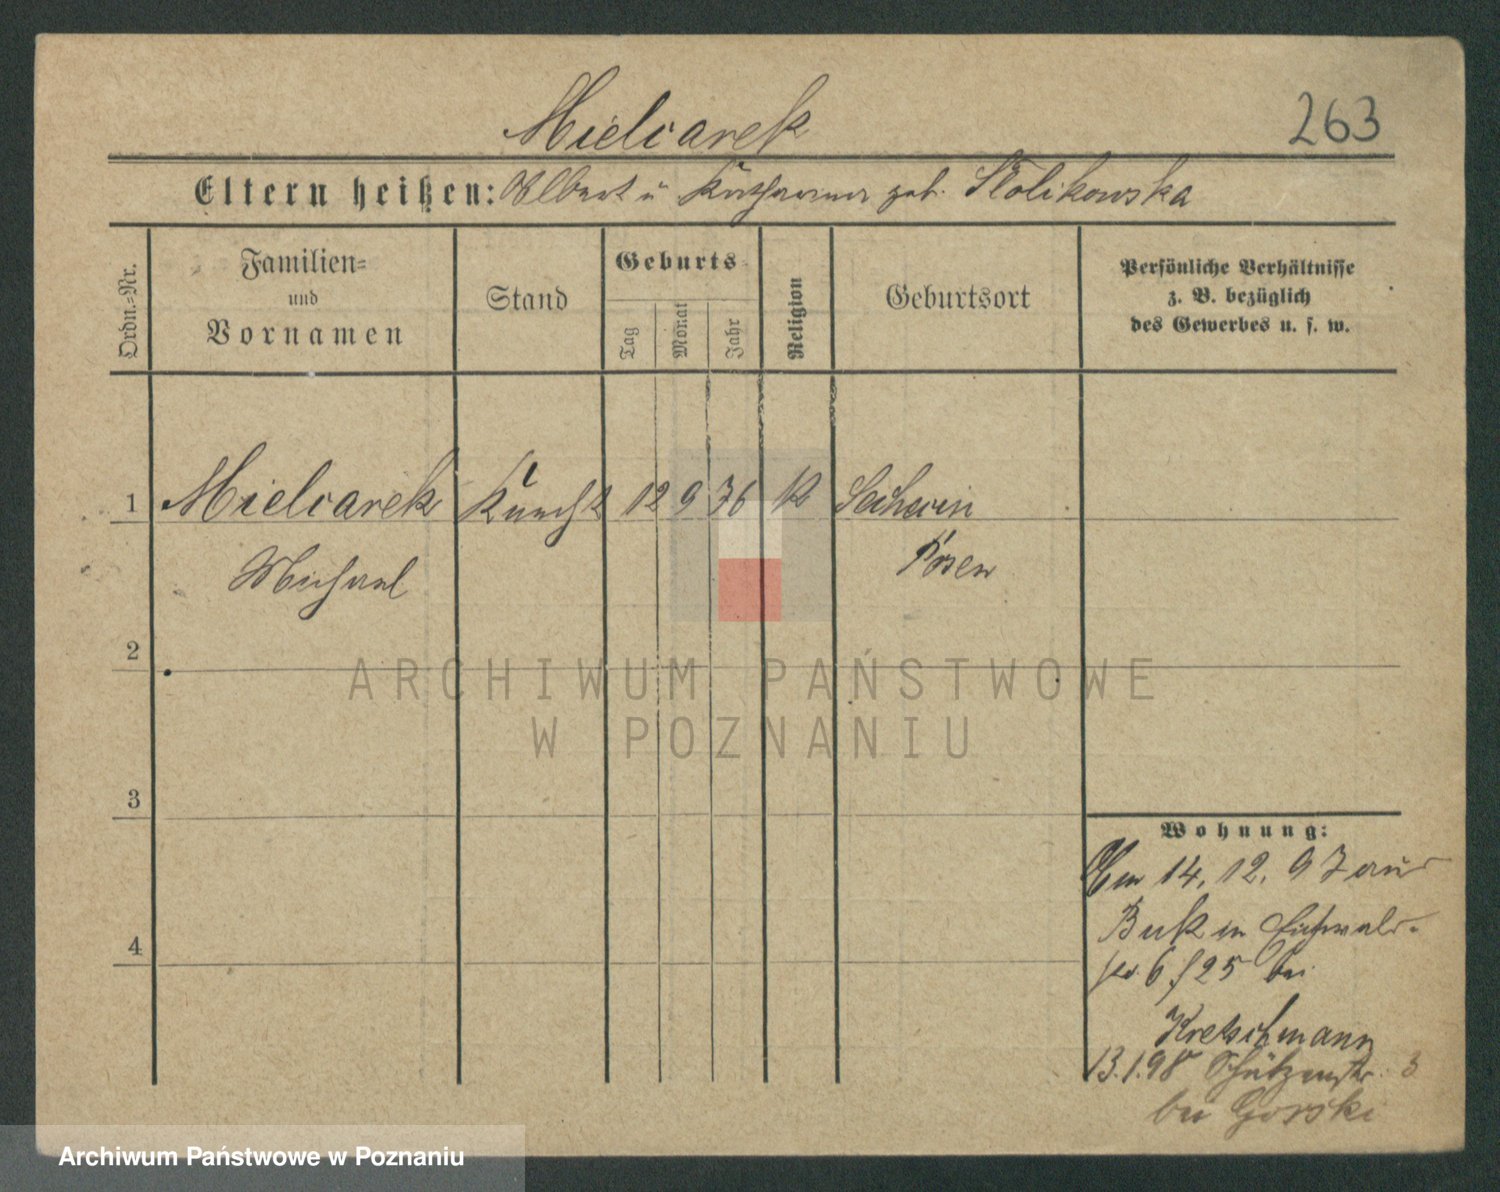 Mielcarek
263
Eltern heißen: Albert u Katharina geb. Stolikowska
Ordn.=Nr.
Familien=
und
Vornamen
Stand
Geburts
Tag
Monat
Jahr
Religion
Geburtsort
Persönliche Verhältnisse
z. B. bezüglich
des Gewerbes u. s. w.
1 Mielcarek Knecht 12 9 76 K
Michael Posen
2
3
4
Wohnung:
Am 14. 12. 97 aus
Buk in Eichwald-
6/25 bei
Kretschmann
13.1.98 Schützenstr. 3
bei Gorski
ARCHIWUM PAŃSTWOWE
W POZNANIU
Archiwum Państwowe w Poznaniu